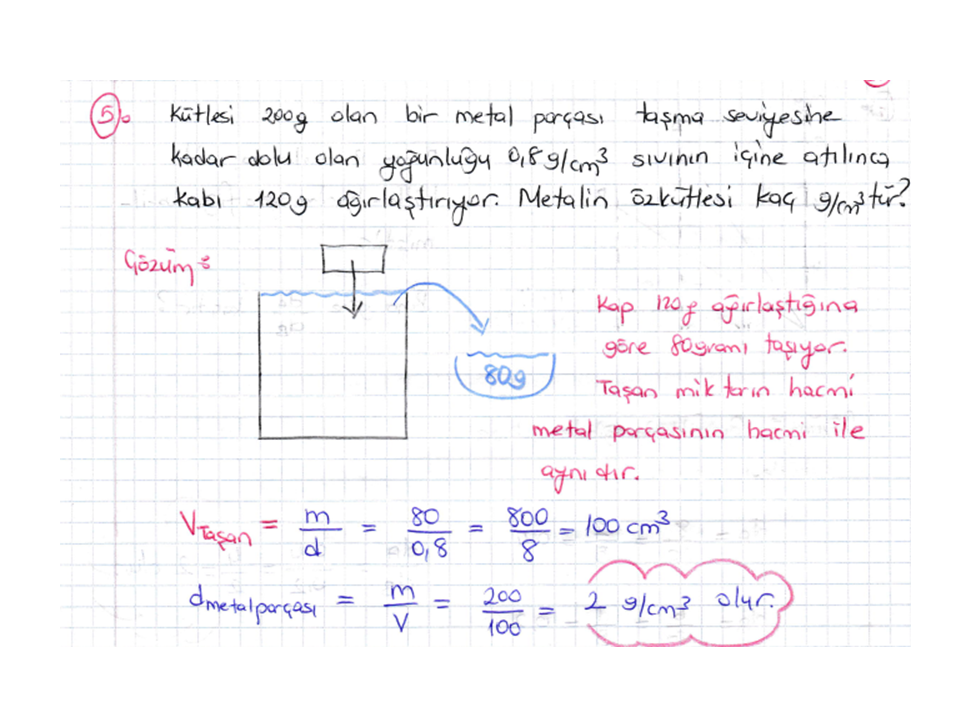 5. Kütlesi 200g olan bir metal parçası taşma seviyesine
kadar dolu olan yoğunluğu 0,8 g/cm³ sıvının içine atılınca
kabı 120g ağırlaştırıyor. Metalin özkütlesi kaç g/cm³ tür?
Çözüm:
Kap 120g ağırlaştığına
göre 80gramı taşıyor.
80g
Taşan miktarın hacmi
metal parçasının hacmi ile
aynıdır.
V Taşan = m/d = 80/0,8 = 800/8 = 100 cm³
d metal parçası = m/V = 200/100 = 2 g/cm³ olur.